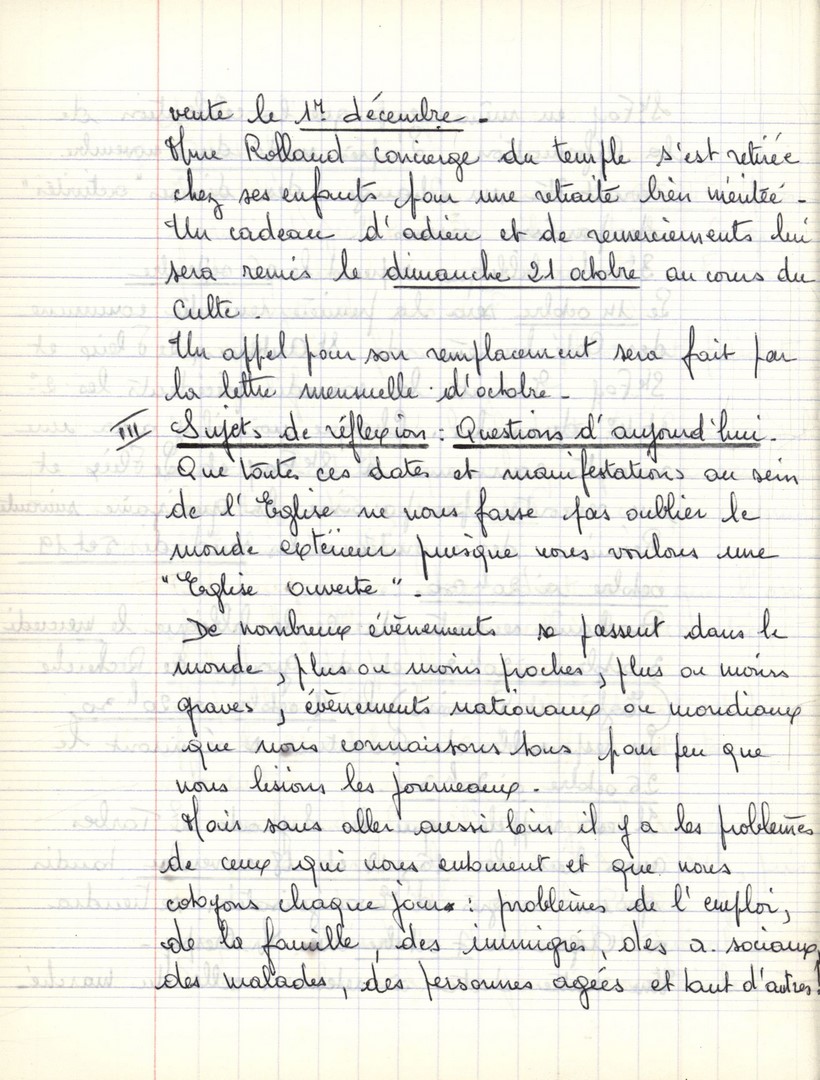 vente le 1er décembre -
Mme Rolland concierge du temple s'est retirée
chez ses enfants pour une retraite bien méritée -
Un cadeau d'adieu et de remerciements lui
sera remis le dimanche 21 octobre au cours du
Culte.
Un appel pour son remplacement sera fait par
la lettre mensuelle d'octobre -
III Sujets de réflexion : Questions d'aujourd'hui.
Que toutes ces dates et manifestations au sein
de l'Eglise ne nous fasse pas oublier le
monde extérieur puisque nous voulons une
"Eglise ouverte" -
De nombreux évènements se passent dans le
monde, plus ou moins proches, plus ou moins
graves, évènements nationaux ou mondiaux
que nous connaissons tous pour peu que
nous lisions les journeaux -
Mais sans aller aussi loin il y a les problèmes
de ceux qui nous entourent et que nous
cotoyons chaque jour : problèmes de l'emploi,
de la famille, des immigrés, des a. sociaux,
des malades, des personnes agées et tant d'autres !